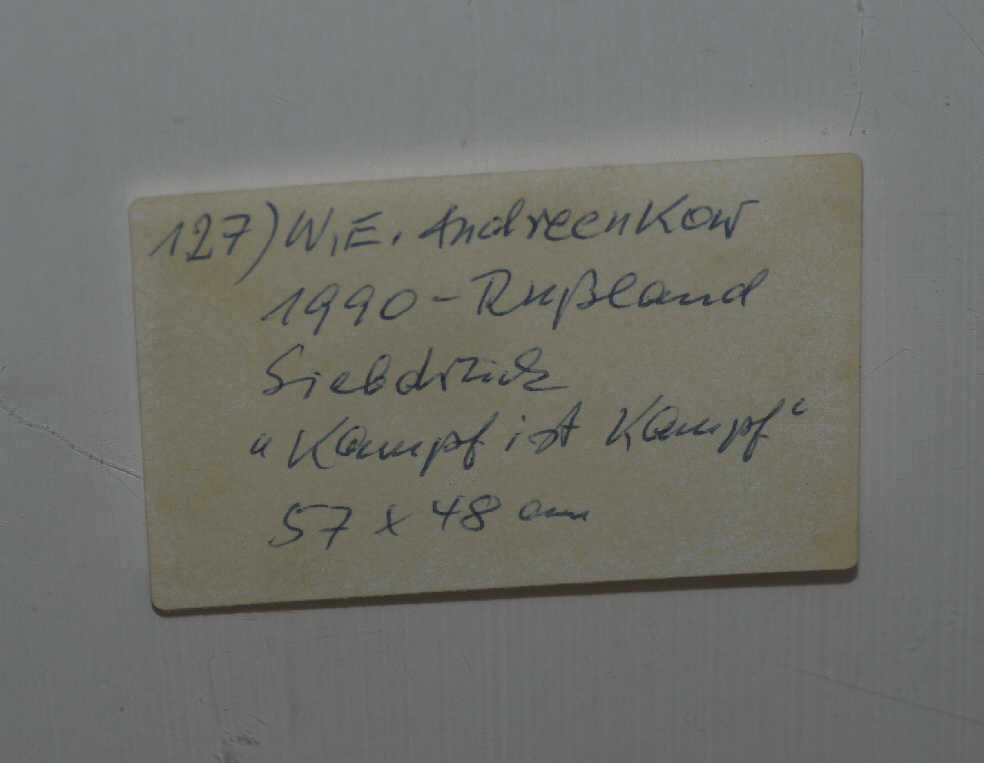 127) W.E. Andreenkow
1990 - Rußland
Siebdruck
"Kampf ist Kampf"
57 x 48 cm